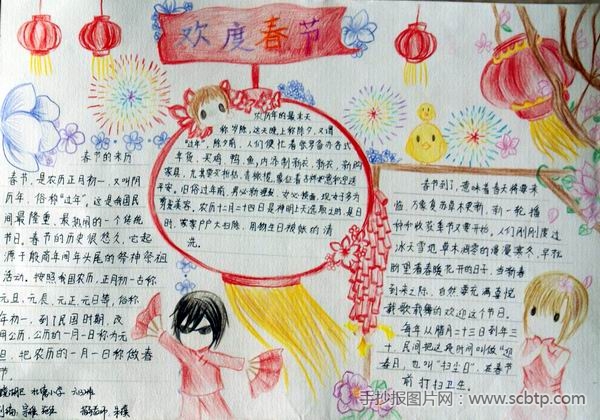 欢度春节
春节的来历
春节，是农历正月初一，又叫阴
历年，俗称"过年"。这是我国民
间最隆重、最热闹的一个传统
节日。春节的历史很悠久，它起
源于殷商时期年头岁尾的祭神祭祖
活动。按照我国农历，正月初一古称
元旦、元辰、元正、元日等，俗称
年初一，到了民国时期，改
用公历，公历的一月一日称为元
旦，把农历的一月一日称做春
节。
农历年的最末天
称岁除，这天晚上称除夕，又谓
"过年"，除夕前，人们便忙着张罗备办各式
年货，买鸡、鸭、鱼、肉，添制新衣、新衣、新购
平安。
日，家家户户大扫除，用物
洗。
春节到了，意味着春天将要来
临，万象复苏草木更新，新一轮播
种和收获季节又要开始。人们刚刚度过
冰天雪地草木凋零的漫漫寒冬，早就
盼望着春暖花开的日子，当新春
到来之际，自然要充满喜悦
载歌载舞的欢迎这个节日。
每年从腊月二十三日到年三
十，民间把这段时间叫做"迎
春日"，也叫"扫尘日"，在春节
前打扫卫生。
手抄报图片网：www.scbtp.com